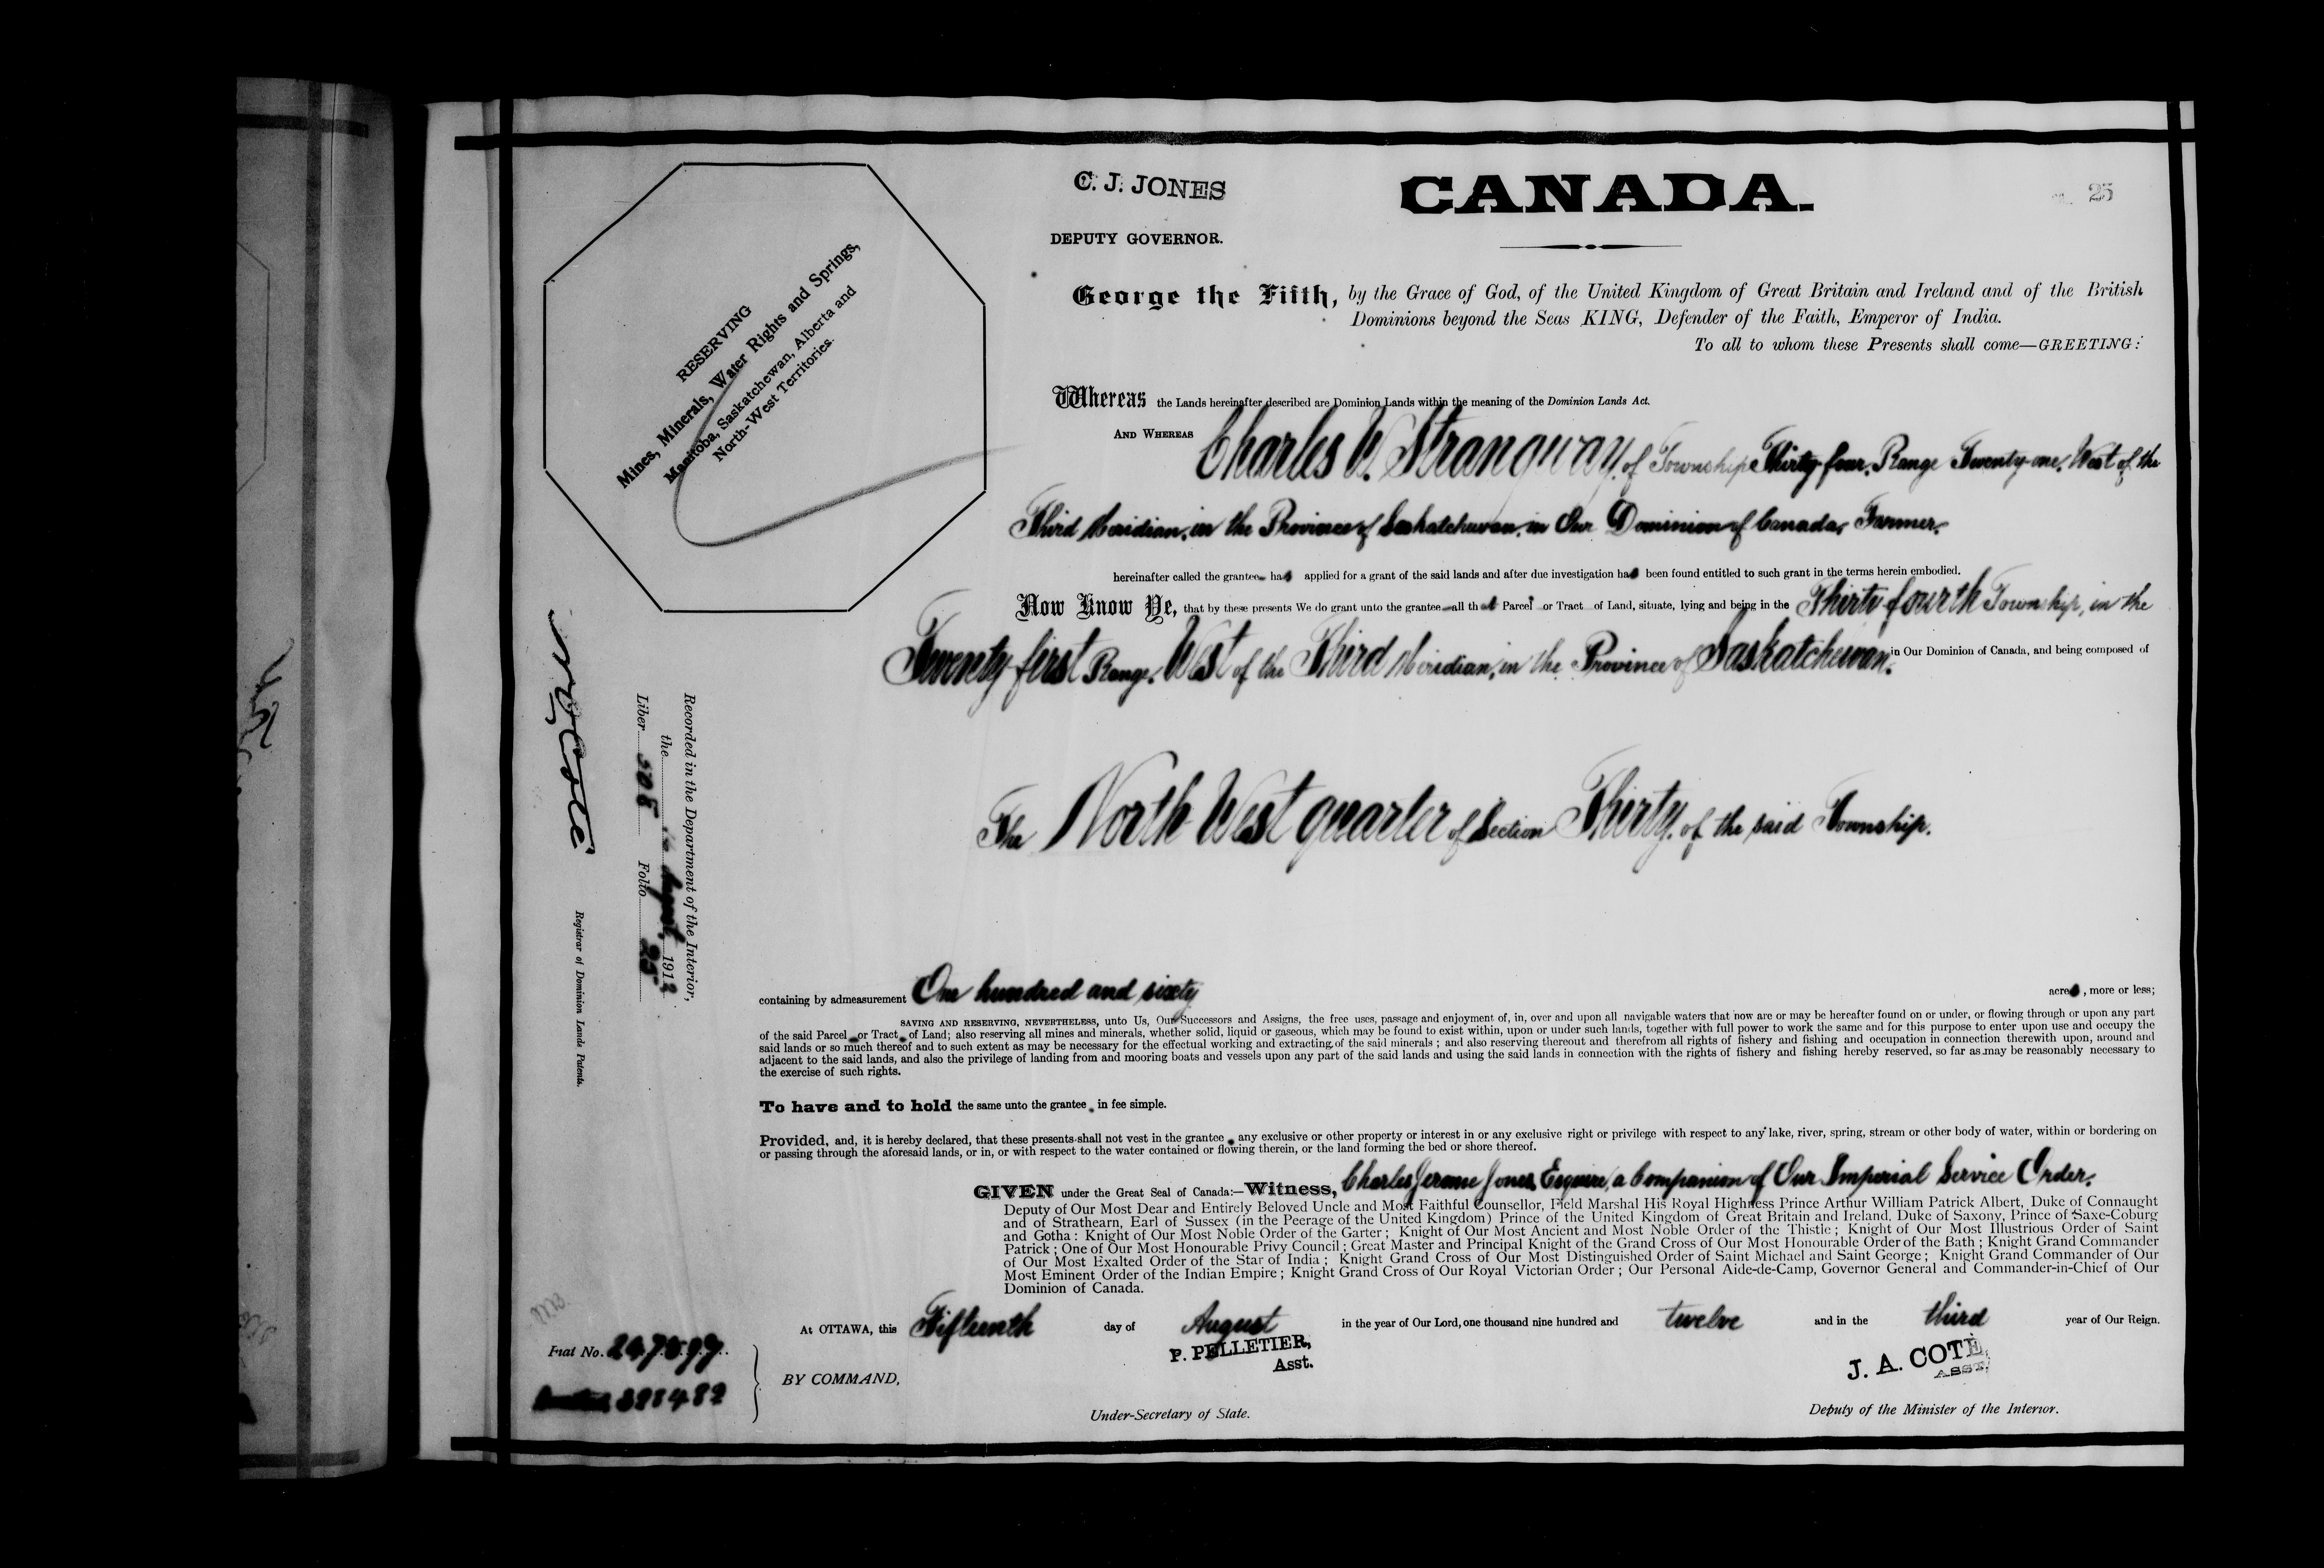 C. J. JONES
DEPUTY GOVERNOR.
CANADA.
25
RESERVING
Mines, Minerals, Water Rights and Springs,
Manitoba, Saskatchewan, Alberta and
North-West Territories.
George the Fifth, by the Grace of God, of the United Kingdom of Great Britain and Ireland and of the British
Dominions beyond the Seas KING, Defender of the Faith, Emperor of India.
To all to whom these Presents shall come—GREETING:
Whereas the Lands hereinafter described are Dominion Lands within the meaning of the Dominion Lands Act.
AND WHEREAS Charles W. Strangway, of Township Thirty-four, Range Twenty-one, West of the
Third Meridian, in the Province of Saskatchewan, in Our Dominion of Canada, Farmer.
hereinafter called the grantee has applied for a grant of the said lands and after due investigation has been found entitled to such grant in the terms herein embodied.
Now Know Ye, that by these presents We do grant unto the grantee all that Parcel or Tract of Land, situate, lying and being in the Thirty fourth Township, in the
Twenty first Range, West of the Third Meridian, in the Province of Saskatchewan, in Our Dominion of Canada, and being composed of
The North West quarter of Section Thirty, of the said Township.
Recorded in the Department of the Interior,
the August 1912
Liber 508 Folio 25
Registrar of Dominion Lands Patents.
containing by admeasurement One hundred and sixty acres, more or less;
SAVING AND RESERVING, NEVERTHELESS, unto Us, Our Successors and Assigns, the free uses, passage and enjoyment of, in, over and upon all navigable waters that now are or may be hereafter found on or under, or flowing through or upon any part
of the said Parcel or Tract of Land; also reserving all mines and minerals, whether solid, liquid or gaseous, which may be found to exist within, upon or under such lands, together with full power to work the same and for this purpose to enter upon use and occupy the
said lands or so much thereof and to such extent as may be necessary for the effectual working and extracting of the said minerals ; and also reserving thereout and therefrom all rights of fishery and fishing and occupation in connection therewith upon, around and
adjacent to the said lands, and also the privilege of landing from and mooring boats and vessels upon any part of the said lands and using the said lands in connection with the rights of fishery and fishing hereby reserved, so far as may be reasonably necessary to
the exercise of such rights.
To have and to hold the same unto the grantee in fee simple.
Provided, and, it is hereby declared, that these presents shall not vest in the grantee any exclusive or other property or interest in or any exclusive right or privilege with respect to any lake, river, spring, stream or other body of water, within or bordering on
or passing through the aforesaid lands, or in, or with respect to the water contained or flowing therein, or the land forming the bed or shore thereof.
GIVEN under the Great Seal of Canada:—Witness, Charles Jerome Jones, Esquire, a Companion of Our Imperial Service Order.
Deputy of Our Most Dear and Entirely Beloved Uncle and Most Faithful Counsellor, Field Marshal His Royal Highness Prince Arthur William Patrick Albert, Duke of Connaught
and of Strathearn, Earl of Sussex (in the Peerage of the United Kingdom) Prince of the United Kingdom of Great Britain and Ireland, Duke of Saxony, Prince of Saxe-Coburg
and Gotha : Knight of Our Most Noble Order of the Garter ; Knight of Our Most Ancient and Most Noble Order of the Thistle ; Knight of Our Most Illustrious Order of Saint
Patrick ; One of Our Most Honourable Privy Council ; Great Master and Principal Knight of the Grand Cross of Our Most Honourable Order of the Bath ; Knight Grand Commander
of Our Most Exalted Order of the Star of India ; Knight Grand Cross of Our Most Distinguished Order of Saint Michael and Saint George ; Knight Grand Commander of Our
Most Eminent Order of the Indian Empire ; Knight Grand Cross of Our Royal Victorian Order ; Our Personal Aide-de-Camp, Governor General and Commander-in-Chief of Our
Dominion of Canada.
At OTTAWA, this Fifteenth day of August in the year of Our Lord, one thousand nine hundred and twelve and in the third year of Our Reign.
P. PELLETIER,
Asst.
J. A. COTÉ,
ASST.
Fiat No.
BY COMMAND,
Under-Secretary of State.
Deputy of the Minister of the Interior.